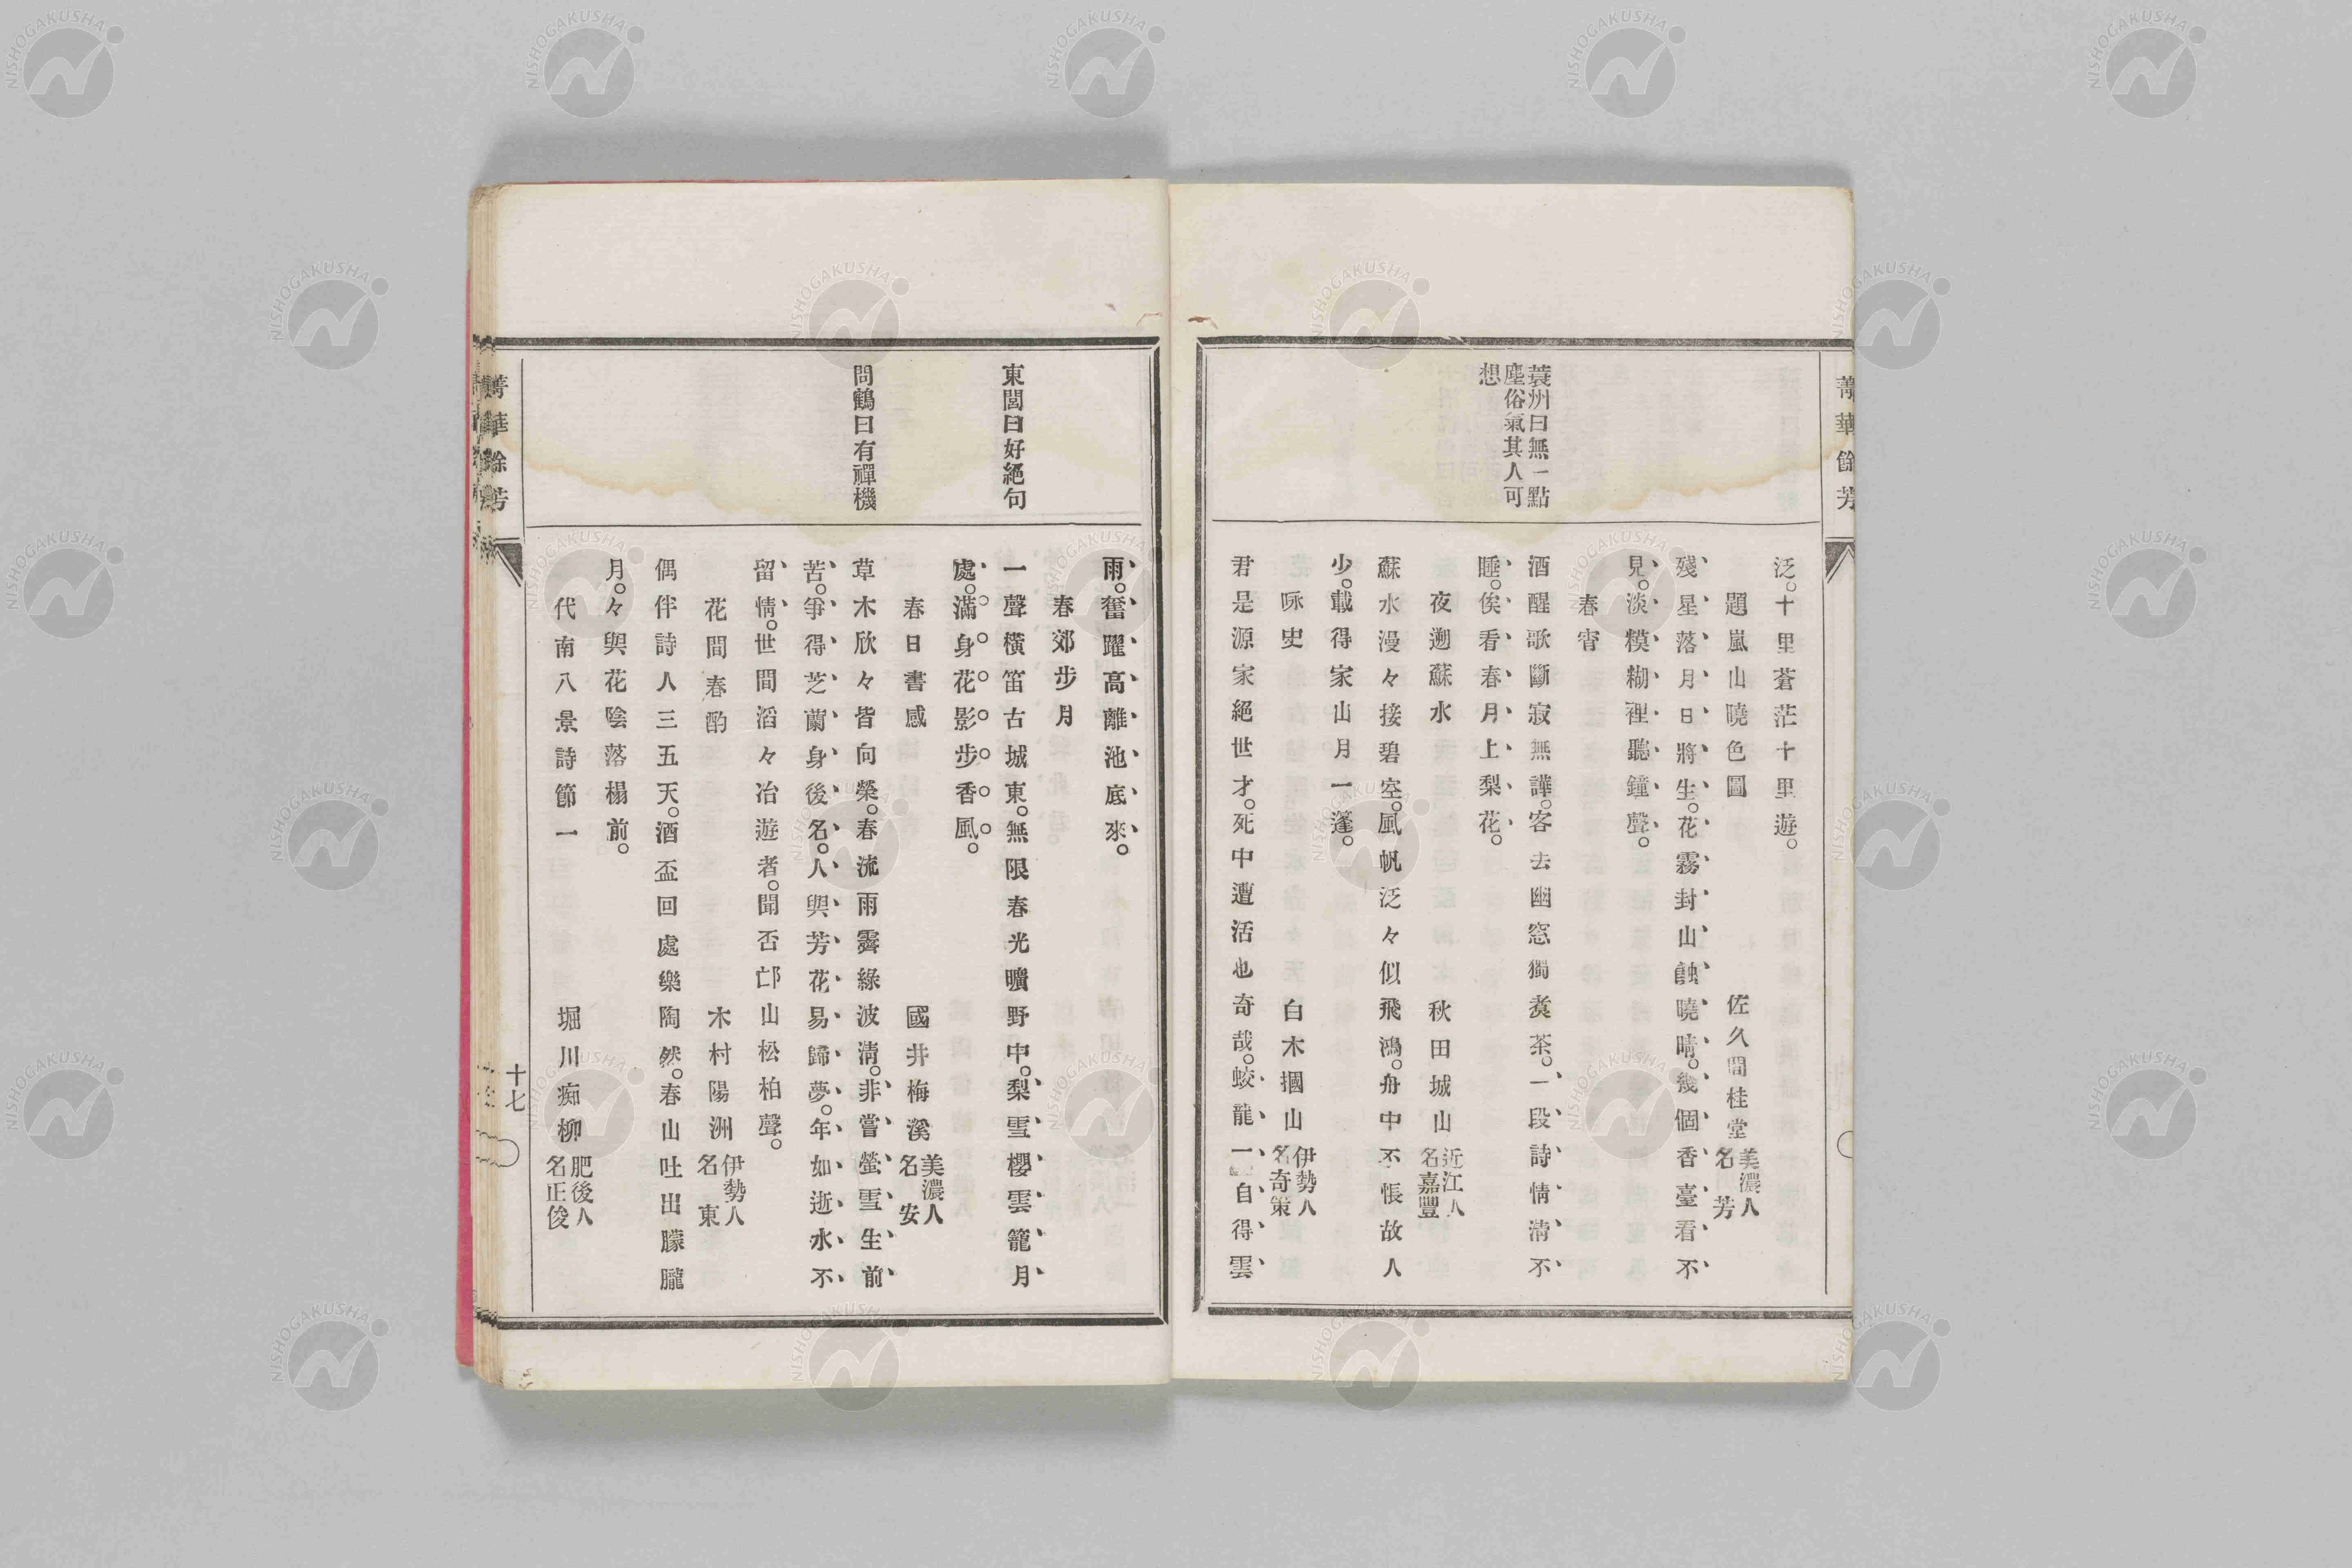 菁華餘芳
蓑洲曰無一點
塵俗氣其人可
想
泛。十里蒼茫十里遊。
題嵐山曉色圖 佐久間桂堂 美濃人 名芳
殘星落月日將生。花霧封山蝕曉晴。幾個香臺看不
見。淡糢糊裡聽鐘聲。
春宵
酒醒歌斷寂無譁。客去幽窓獨煑茶。一段詩情淸不
睡。俟看春月上梨花。
夜遡蘇水 秋田城山 近江人 名嘉豐
蘇水漫々接碧空。風帆泛々似飛鴻。舟中不悵故人
少。載得家山月一篷。
咏史 白木摑山 伊勢人 名奇策
君是源家絕世才。死中遭活也奇哉。蛟龍一自得雲
東閭曰好絕句
問鶴曰有禪機
雨。奮躍高離池底來。
春郊步月
一聲橫笛古城東。無限春光曠野中。梨雪櫻雲籠月
處。滿身花影步香風。
春日書感 國井梅溪 美濃人 名安
草木欣々皆向榮。春流雨霽綠波淸。非嘗螢雪生前
苦。爭得芝蘭身後名。人與芳花易歸夢。年如逝水不
留情。世間滔々冶遊者。聞否邙山松柏聲。
花間春酌 木村陽洲 伊勢人 名東
偶伴詩人三五天。酒盃回處樂陶然。春山吐出朦朧
月。々與花陰落榻前。
代南八景詩節一 堀川痴柳 肥後人 名正俊
菁華餘芳
十七